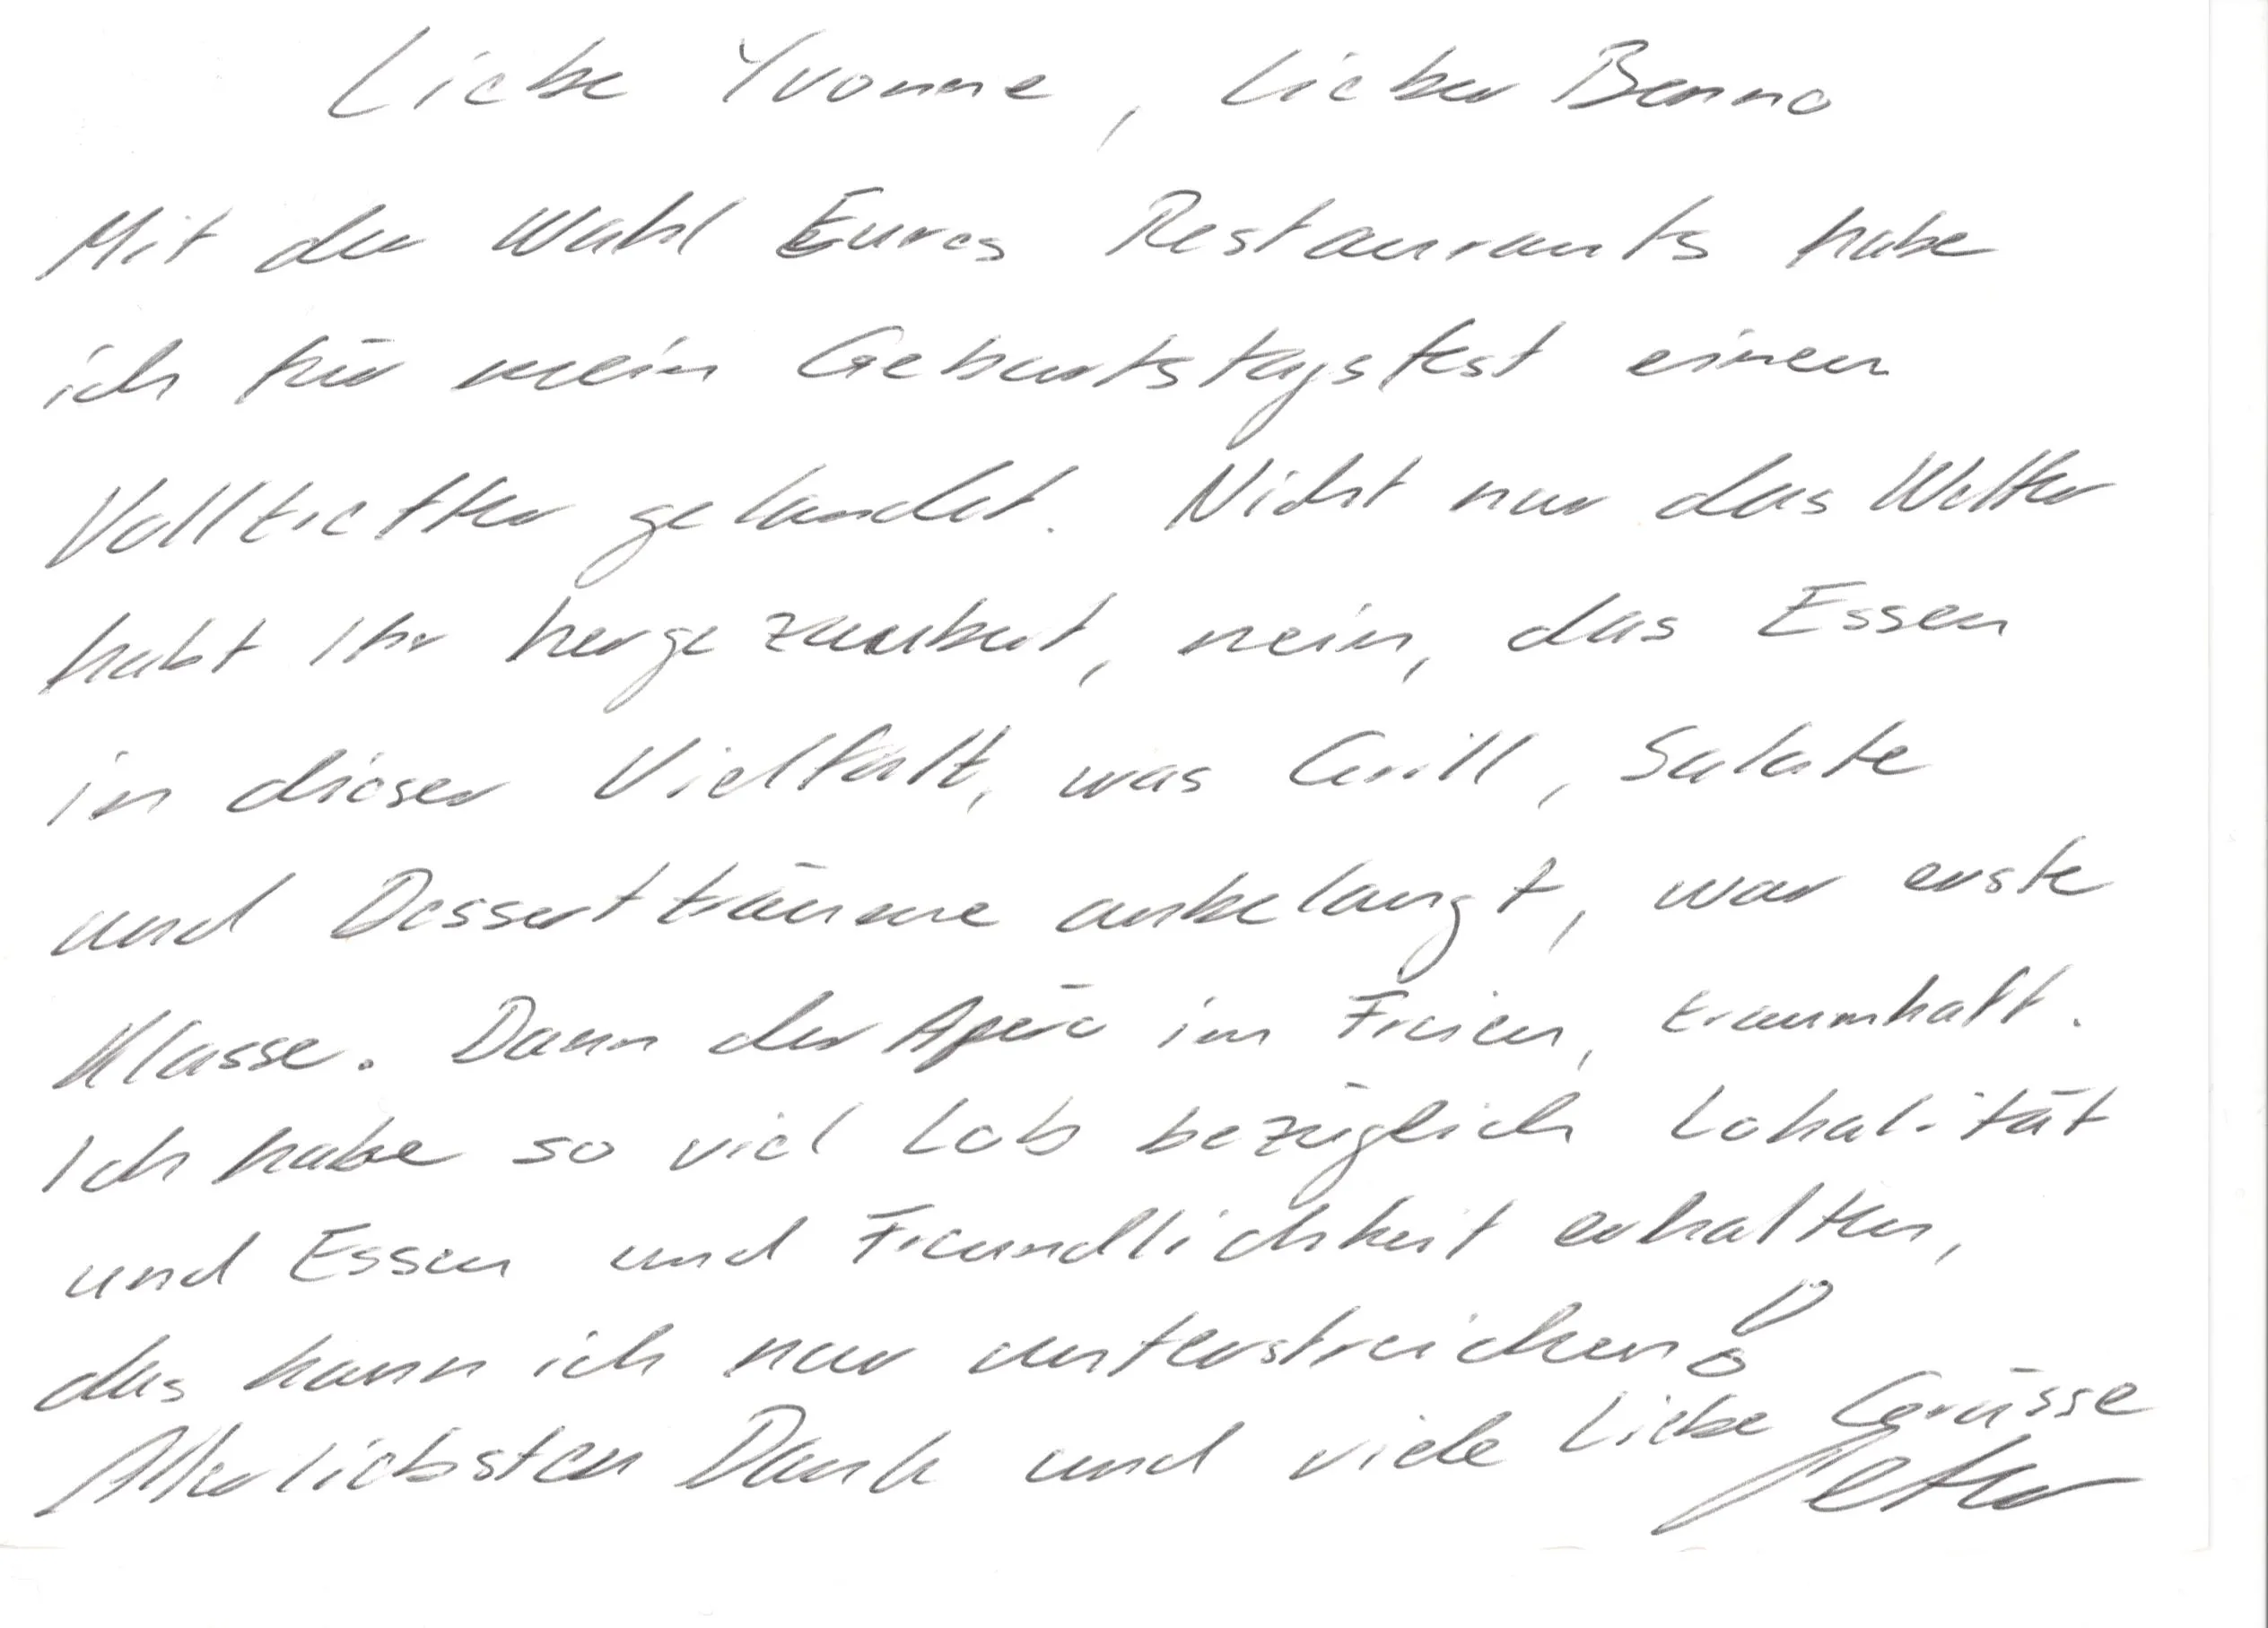 Liebe Yvonne, lieber Benno
Mit der Wahl Eures Restaurants habe
ich für mein Geburtstagsfest einen
Volltreffer gelandet. Nicht nur das Wetter
habt Ihr hergezaubert, nein, das Essen
in dieser Vielfalt, was Grill, Salate
und Dessertträume anbelangt, war erste
Klasse. Dann der Apéro im Freien, traumhaft.
Ich habe so viel Lob bezüglich Lokalität
und Essen und Freundlichkeit erhalten,
das kann ich nur unterstreichen!
Allerliebsten Dank und viele liebe Grüsse
Peter